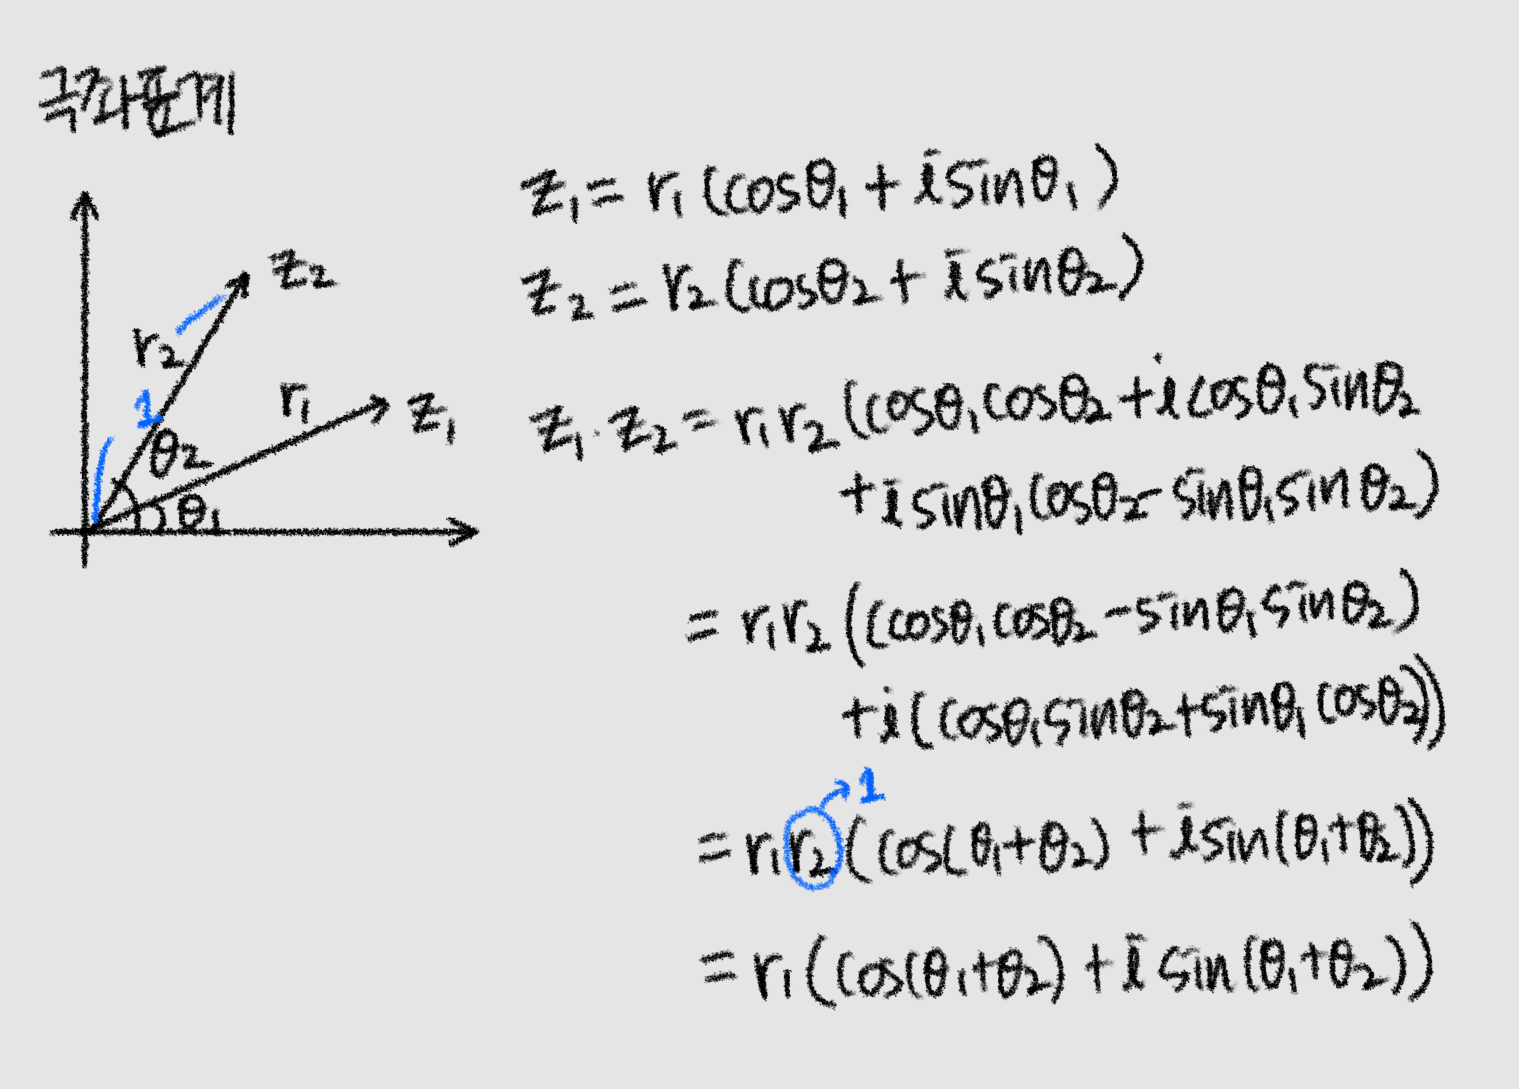 극좌표계
z₂
r₂
1
r₁
z₁
θ₂
θ₁
z₁ = r₁(cosθ₁ + i sinθ₁)
z₂ = r₂(cosθ₂ + i sinθ₂)
z₁·z₂ = r₁r₂(cosθ₁cosθ₂ + i cosθ₁sinθ₂
+ i sinθ₁cosθ₂ - sinθ₁sinθ₂)
= r₁r₂((cosθ₁cosθ₂ - sinθ₁sinθ₂)
+ i(cosθ₁sinθ₂ + sinθ₁cosθ₂))
1
= r₁r₂(cos(θ₁+θ₂) + i sin(θ₁+θ₂))
= r₁(cos(θ₁+θ₂) + i sin(θ₁+θ₂))